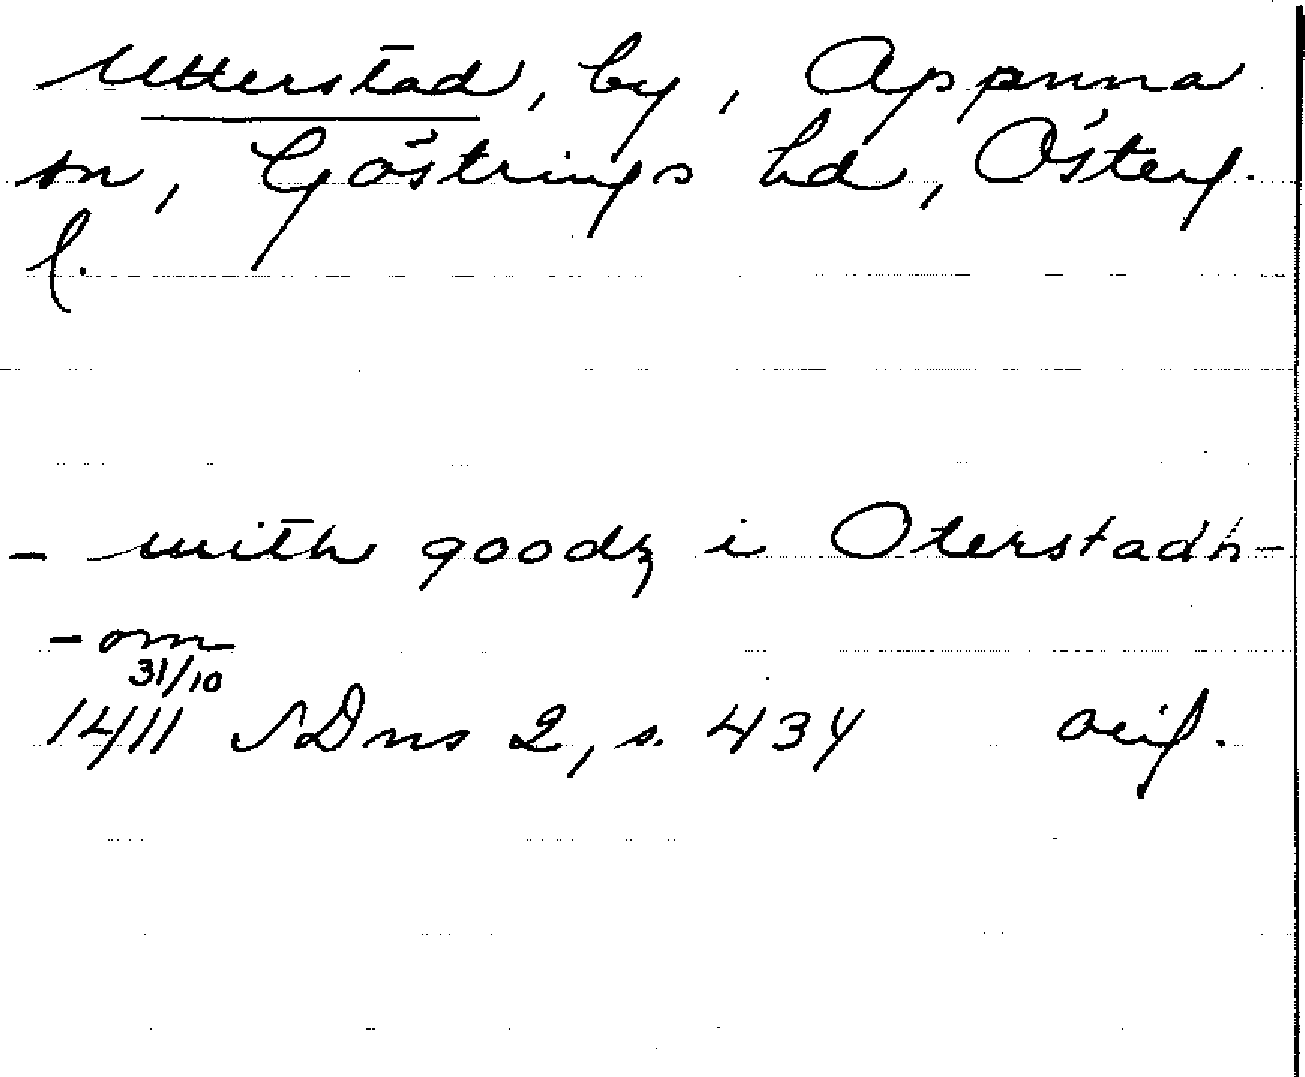 Utterstad, by, Appuna
sn, Göstrings hd, Österg.
l.
- mith goodz i Oterstadh-
- om
31/10
1411 SDns 2, s. 434 orig.